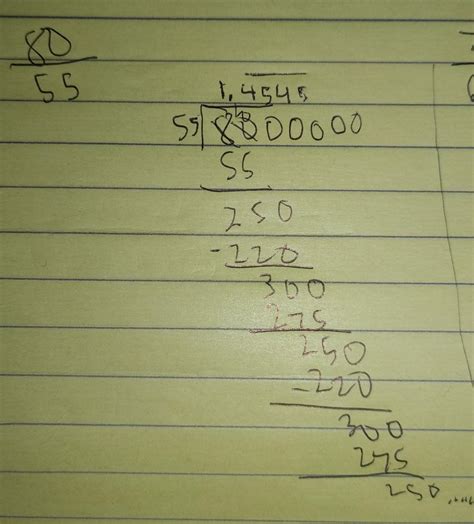 80
55
1.4545
55 8000000
55
250
-220
300
275
250
-220
300
275
250.....